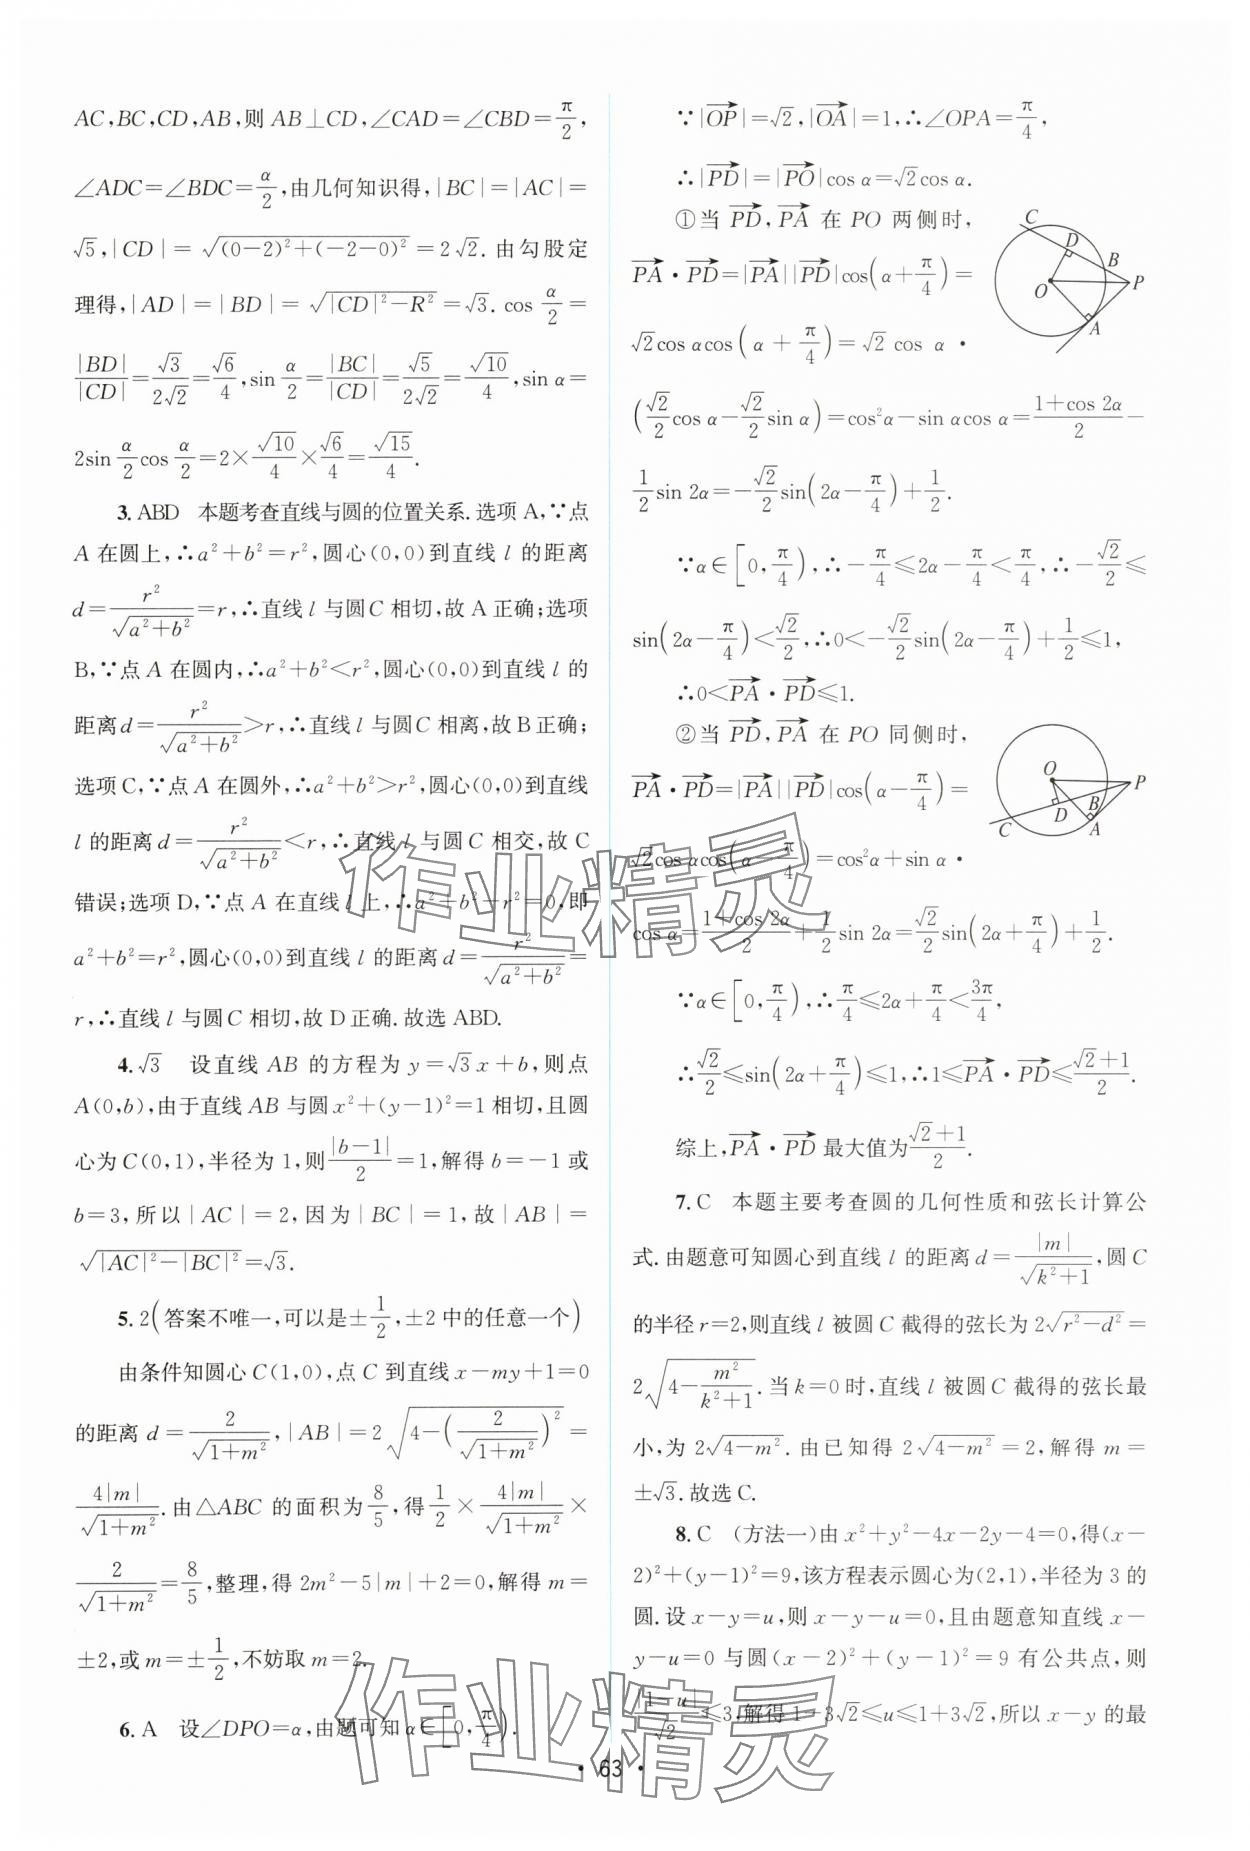 AC,BC,CD,AB,则 AB⊥CD,∠CAD=∠CBD=π/2,
∠ADC=∠BDC=α/2,由几何知识得,|BC|=|AC|=
√5,|CD|=√((0-2)²+(-2-0)²)=2√2.由勾股定
理得,|AD|=|BD|=√(|CD|²-R²)=√3.cos α/2=
|BD|/|CD|=√3/(2√2)=√6/4,sin α/2=|BC|/|CD|=√5/(2√2)=√10/4,sin α=
2sin α/2 cos α/2=2×√10/4×√6/4=√15/4.
3.ABD 本题考查直线与圆的位置关系.选项 A,∵点
A 在圆上,∴a²+b²=r²,圆心(0,0)到直线 l 的距离
d=r²/√(a²+b²)=r,∴直线 l 与圆 C 相切,故 A 正确;选项
B,∵点 A 在圆内,∴a²+b²<r²,圆心(0,0)到直线 l 的
距离 d=r²/√(a²+b²)>r,∴直线 l 与圆 C 相离,故 B 正确;
选项 C,∵点 A 在圆外,∴a²+b²>r²,圆心(0,0)到直线
l 的距离 d=r²/√(a²+b²)<r,∴直线 l 与圆 C 相交,故 C
错误;选项 D,∵点 A 在直线 l 上,∴a²+b²-r²=0,即
a²+b²=r²,圆心(0,0)到直线 l 的距离 d=r²/√(a²+b²)=
r,∴直线 l 与圆 C 相切,故 D 正确.故选 ABD.
4.√3 设直线 AB 的方程为 y=√3x+b,则点
A(0,b),由于直线 AB 与圆 x²+(y-1)²=1 相切,且圆
心为 C(0,1),半径为 1,则|b-1|/2=1,解得 b=-1 或
b=3,所以|AC|=2,因为|BC|=1,故|AB|=
√(|AC|²-|BC|²)=√3.
5.2(答案不唯一,可以是±1/2,±2 中的任意一个)
由条件知圆心 C(1,0),点 C 到直线 x-my+1=0
的距离 d=2/√(1+m²),|AB|=2√(4-(2/√(1+m²))²)=
4|m|/√(1+m²).由△ABC 的面积为8/5,得1/2×4|m|/√(1+m²)×
2/√(1+m²)=8/5,整理,得 2m²-5|m|+2=0,解得 m=
±2,或 m=±1/2,不妨取 m=2.
6.A 设∠DPO=α,由题可知 α∈[0,π/4).
∵|OP→|=√2,|OA→|=1,∴∠OPA=π/4,
∴|PD→|=|PO→|cos α=√2cos α.
①当 PD→,PA→ 在 PO 两侧时,
PA→·PD→=|PA→||PD→|cos(α+π/4)=
√2cos αcos(α+π/4)=√2 cos α·
(√2/2cos α-√2/2sin α)=cos²α-sin αcos α=(1+cos 2α)/2-
1/2sin 2α=-√2/2sin(2α-π/4)+1/2.
∵α∈[0,π/4),∴-π/4≤2α-π/4<π/4,∴-√2/2≤
sin(2α-π/4)<√2/2,∴0<-√2/2sin(2α-π/4)+1/2≤1,
∴0<PA→·PD→≤1.
②当 PD→,PA→ 在 PO 同侧时,
PA→·PD→=|PA→||PD→|cos(α-π/4)=
√2cos αcos(α-π/4)=cos²α+sin α·
cos α=(1+cos 2α)/2+1/2sin 2α=√2/2sin(2α+π/4)+1/2.
∵α∈[0,π/4),∴π/4≤2α+π/4<3π/4,
∴√2/2≤sin(2α+π/4)≤1,∴1≤PA→·PD→≤(√2+1)/2.
综上,PA→·PD→最大值为(√2+1)/2.
7.C 本题主要考查圆的几何性质和弦长计算公
式.由题意可知圆心到直线 l 的距离 d=|m|/√(k²+1),圆 C
的半径 r=2,则直线 l 被圆 C 截得的弦长为 2√(r²-d²)=
2√(4-m²/(k²+1)).当 k=0 时,直线 l 被圆 C 截得的弦长最
小,为 2√(4-m²).由已知得 2√(4-m²)=2,解得 m=
±√3.故选 C.
8.C (方法一)由 x²+y²-4x-2y-4=0,得(x-
2)²+(y-1)²=9,该方程表示圆心为(2,1),半径为 3 的
圆.设 x-y=u,则 x-y-u=0,且由题意知直线 x-
y-u=0 与圆(x-2)²+(y-1)²=9 有公共点,则
|1-u|/√2≤3,解得 1-3√2≤u≤1+3√2,所以 x-y 的最
C
D
B
P
O
A
O
P
D
B
C
A
作业精灵
作业精灵
· 63 ·